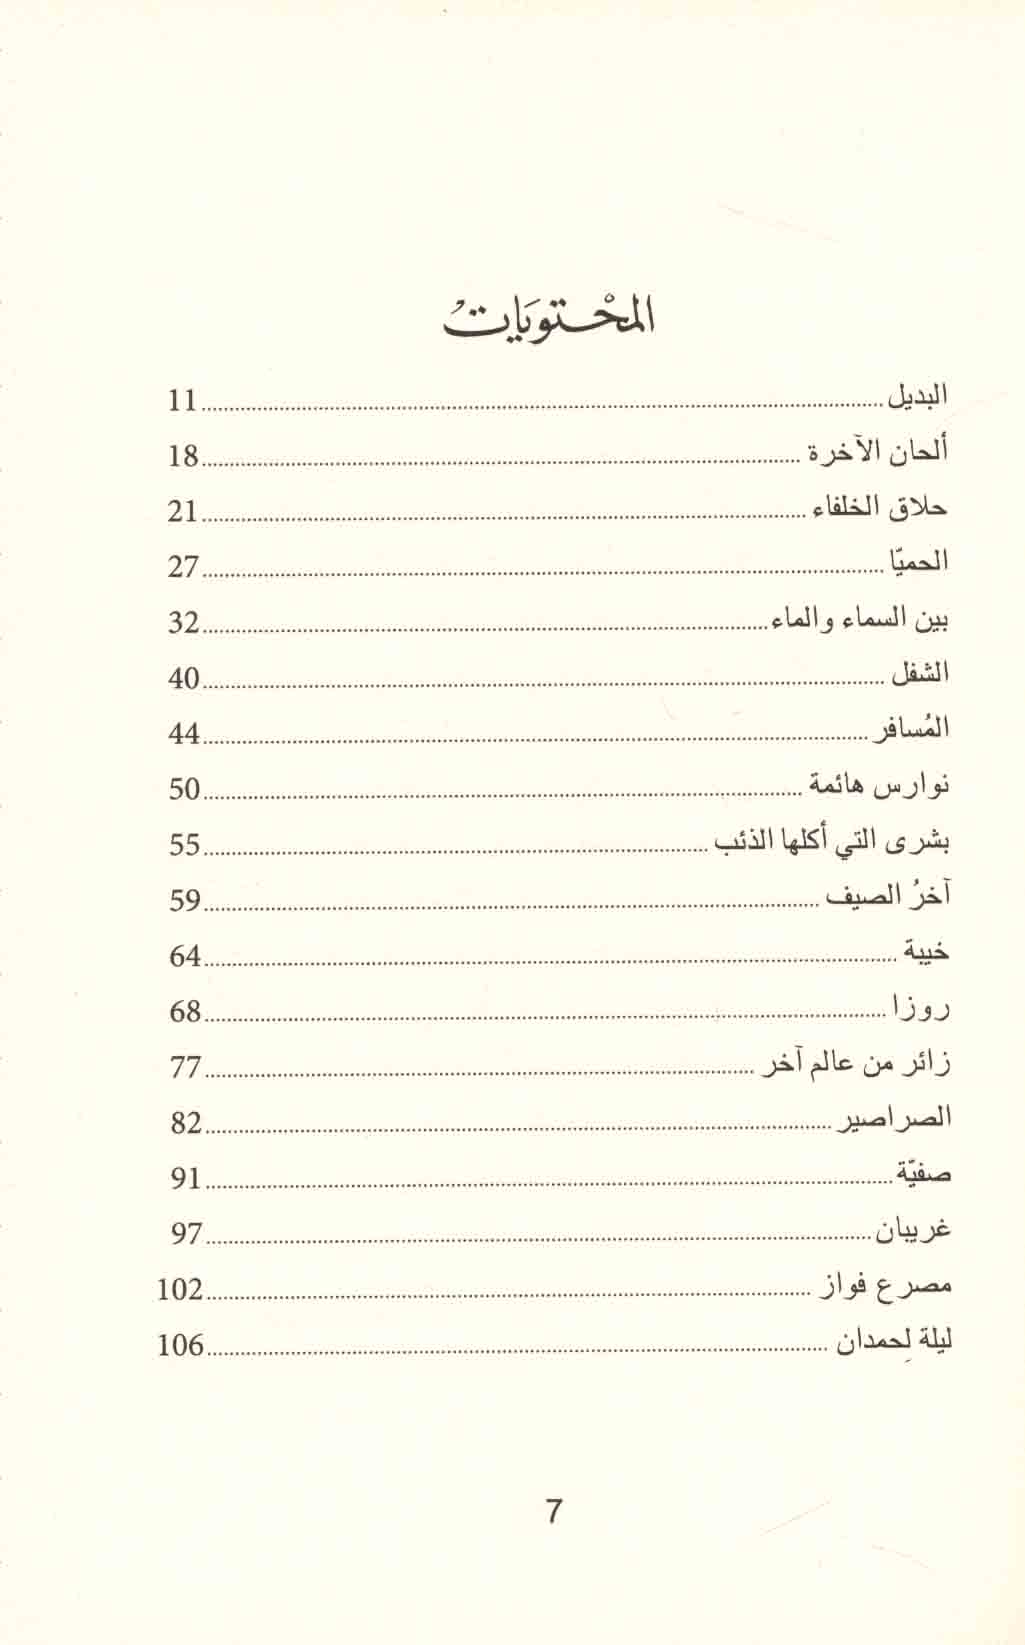 المحْتويَات
البديل 11
ألحان الآخرة 18
حلاق الخلفاء 21
الحميّا 27
بين السماء والماء 32
الشفل 40
المُسافر 44
نوارس هائمة 50
بشرى التي أكلها الذئب 55
آخرُ الصيف 59
خيبة 64
روزا 68
زائر من عالم آخر 77
الصراصير 82
صفيّة 91
غريبان 97
مصرع فواز 102
ليلة لِحمدان 106
7